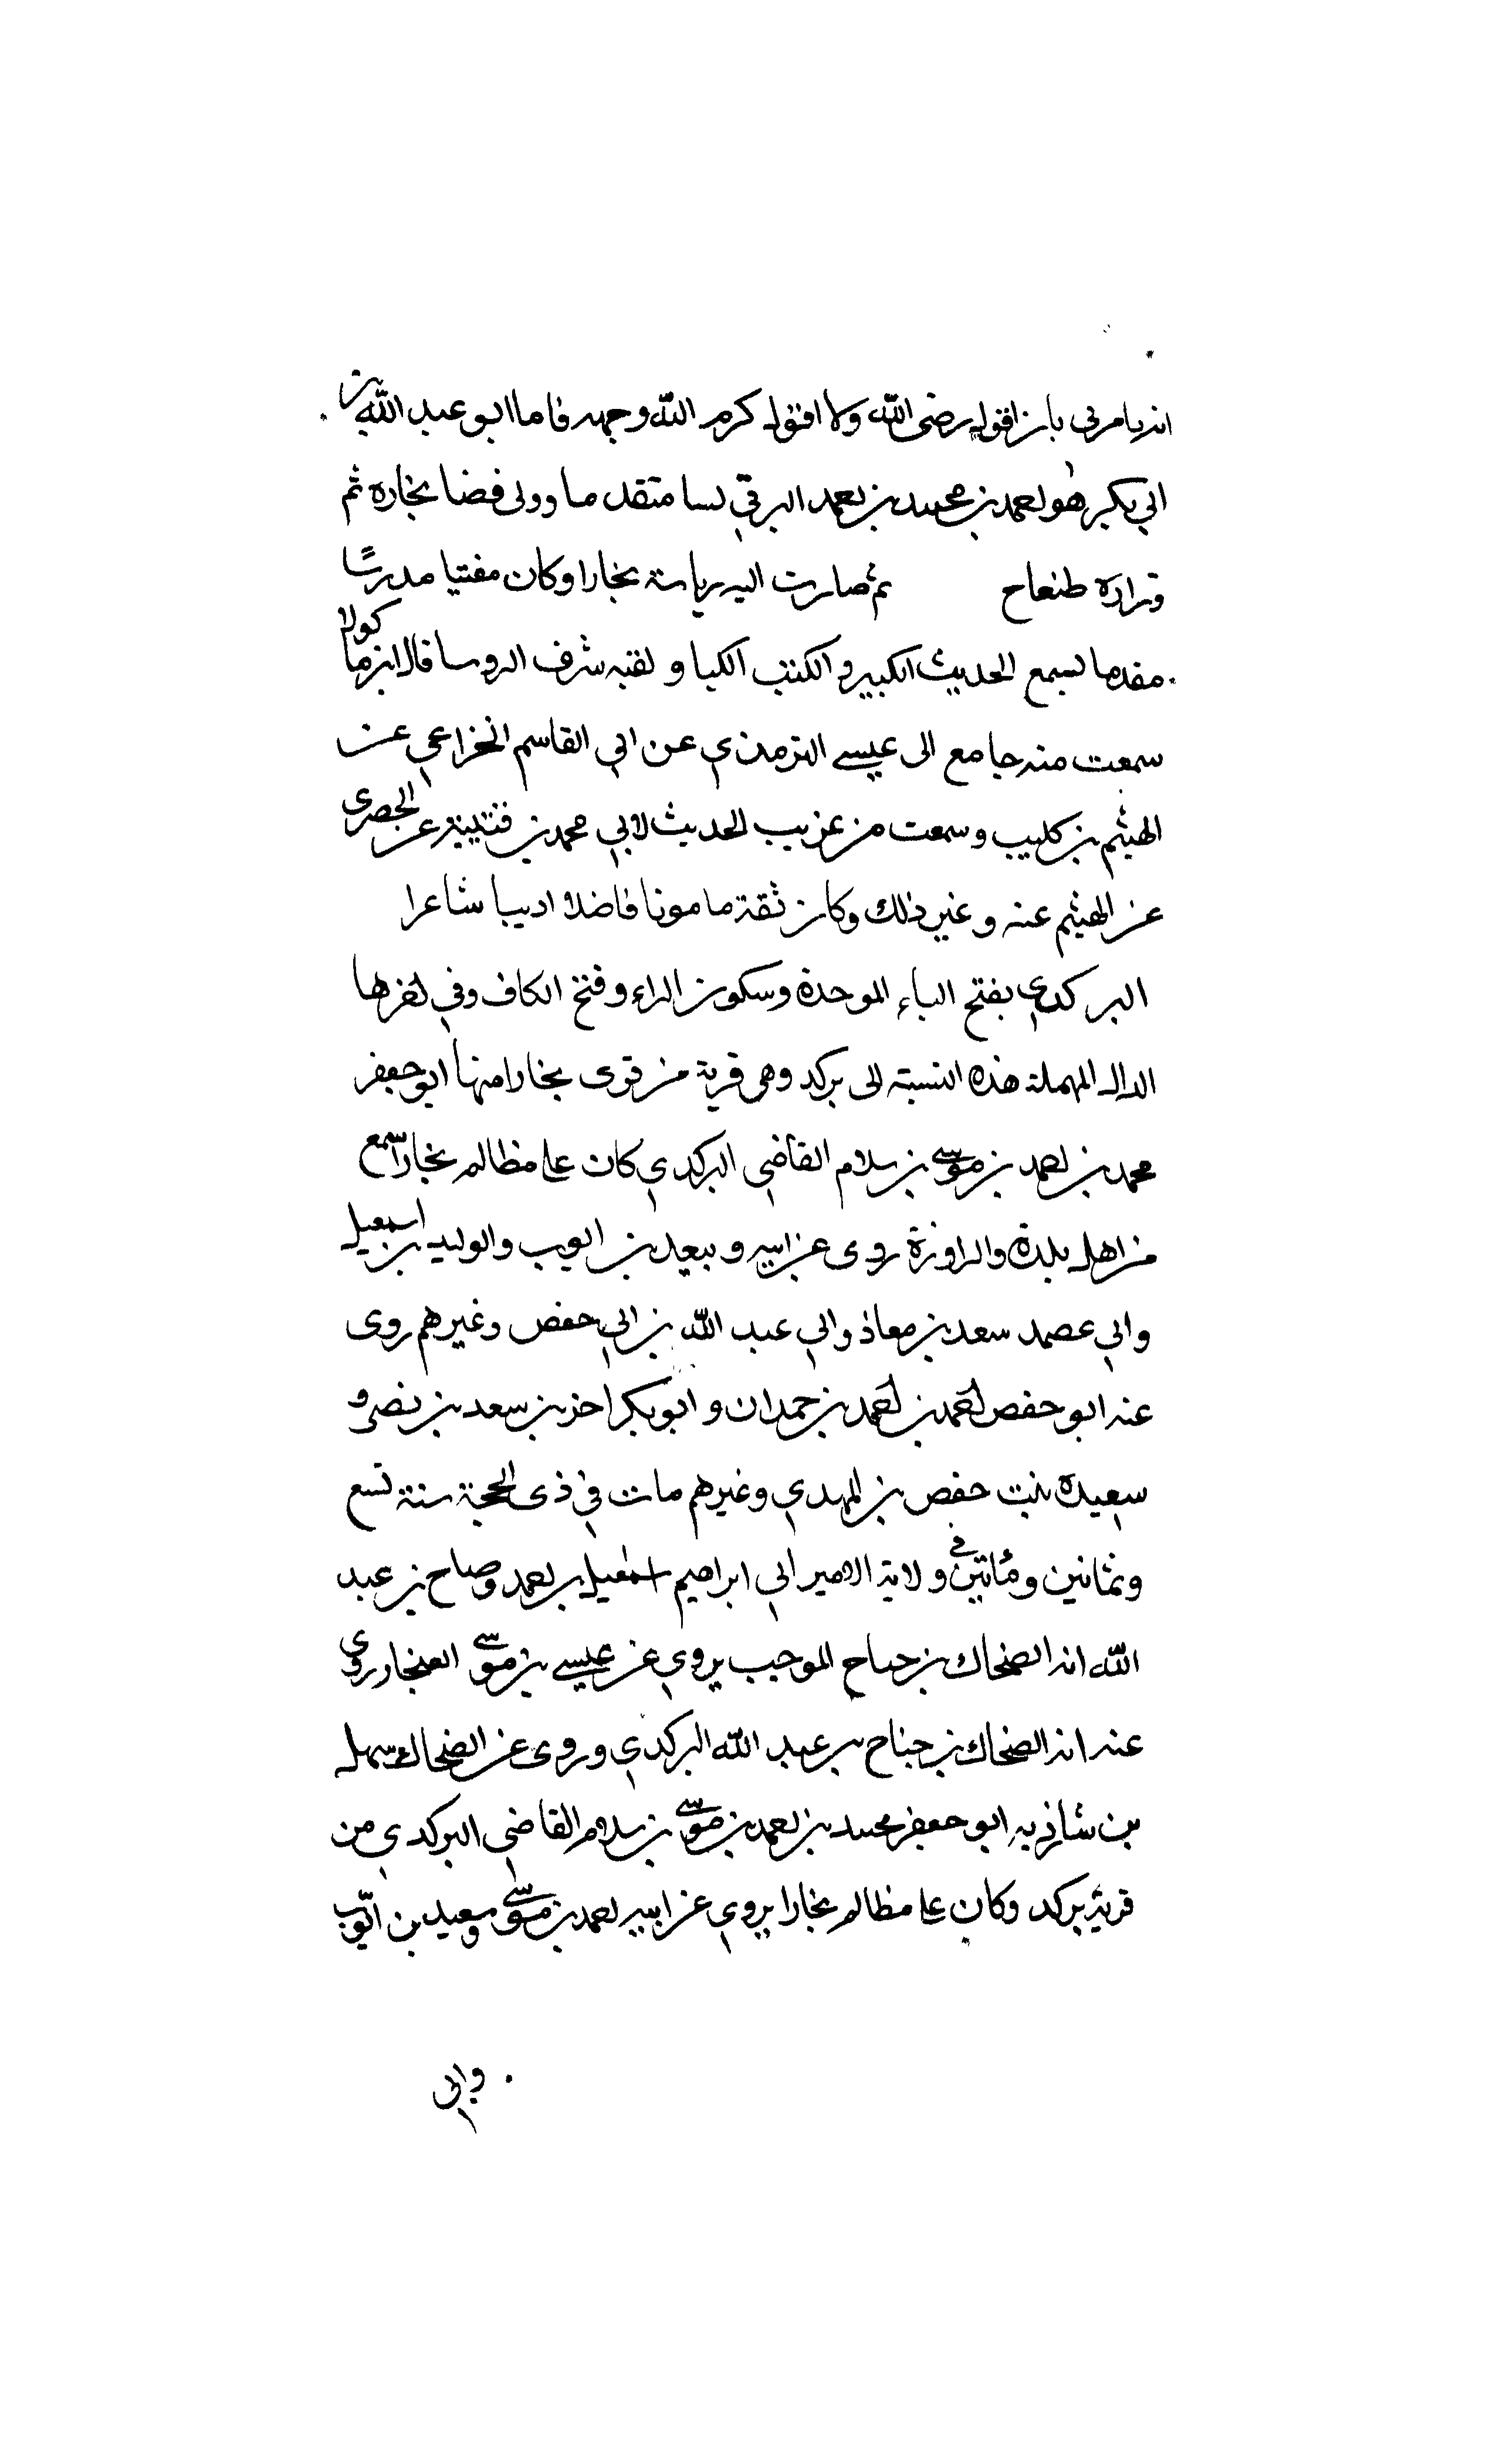 انه يامرني بان اقوله رضي الله ولا اقوله كرم الله وجهه فاما ابو عبد الله بن
ابي بكر هو احمد بن محمد بن احمد البرقي متقدما وولى قضا بخاره ثم
طنعاح ثم صارت اليه رياسة بخارا وكان مفتيا مدرسًا
مقدما لسمع الحديث الكبير والكتب الكبا ولقبه شرف الروسا قال ابن ماكولا
سمعت منه جامع ابي عيسى الترمذي عن ابي القاسم الخزاعي عن
الهيثم بن كليب وسمعت من غريب الحديث لابي محمد بن قتيبة عن الحصرى
عن الهيثم عنه وغير ذلك وكان ثقة مامونا فاضلا اديبا شاعرا
البركدي بفتح الباء الموحدة وسكون الراء وفتح الكاف وفي اخرها
الدال المهملة هذه النسبة الى بركد وهي قرية من قرى بخارا منها ابو جعفر
محمد بن احمد بن موسى بن سلام القاضي البركدي كان على مظالم بخارا سمع
من اهل بلدة والراوزة روى عن ابيه وبيعد بن ايوب والوليد بن اسمعيل
وابي عصمد سعد بن معاذ وابي عبد الله بن ابي حفص وغيرهم روى
عنه ابو حفص احمد بن احمد بن حمدان وابو بكر احمد بن سعد بن نصر و
سعيدة بنت حفص بن المهدي وغيرهم مات في ذى الحجة سنة تسع
وثمانين ومأتين في ولاية الامير ابي ابراهيم اسمعيل بن احمد وصاح بن عبد
الله انه الضحاك بن جناح الموجب يروي عن عيسى بن موسى الغنجار روى
عنه انه الضحاك بن جناح بن عبد الله البركدي وروى عن الضحاك سهل
بن شاذيه ابو جعفر محمد بن احمد بن موسى بن سلام القاضي البركدي من
قرية بركد وكان على مظالم بخارا يروي عن ابيه احمد بن موسى وسعيد بن ايّوب
وابي